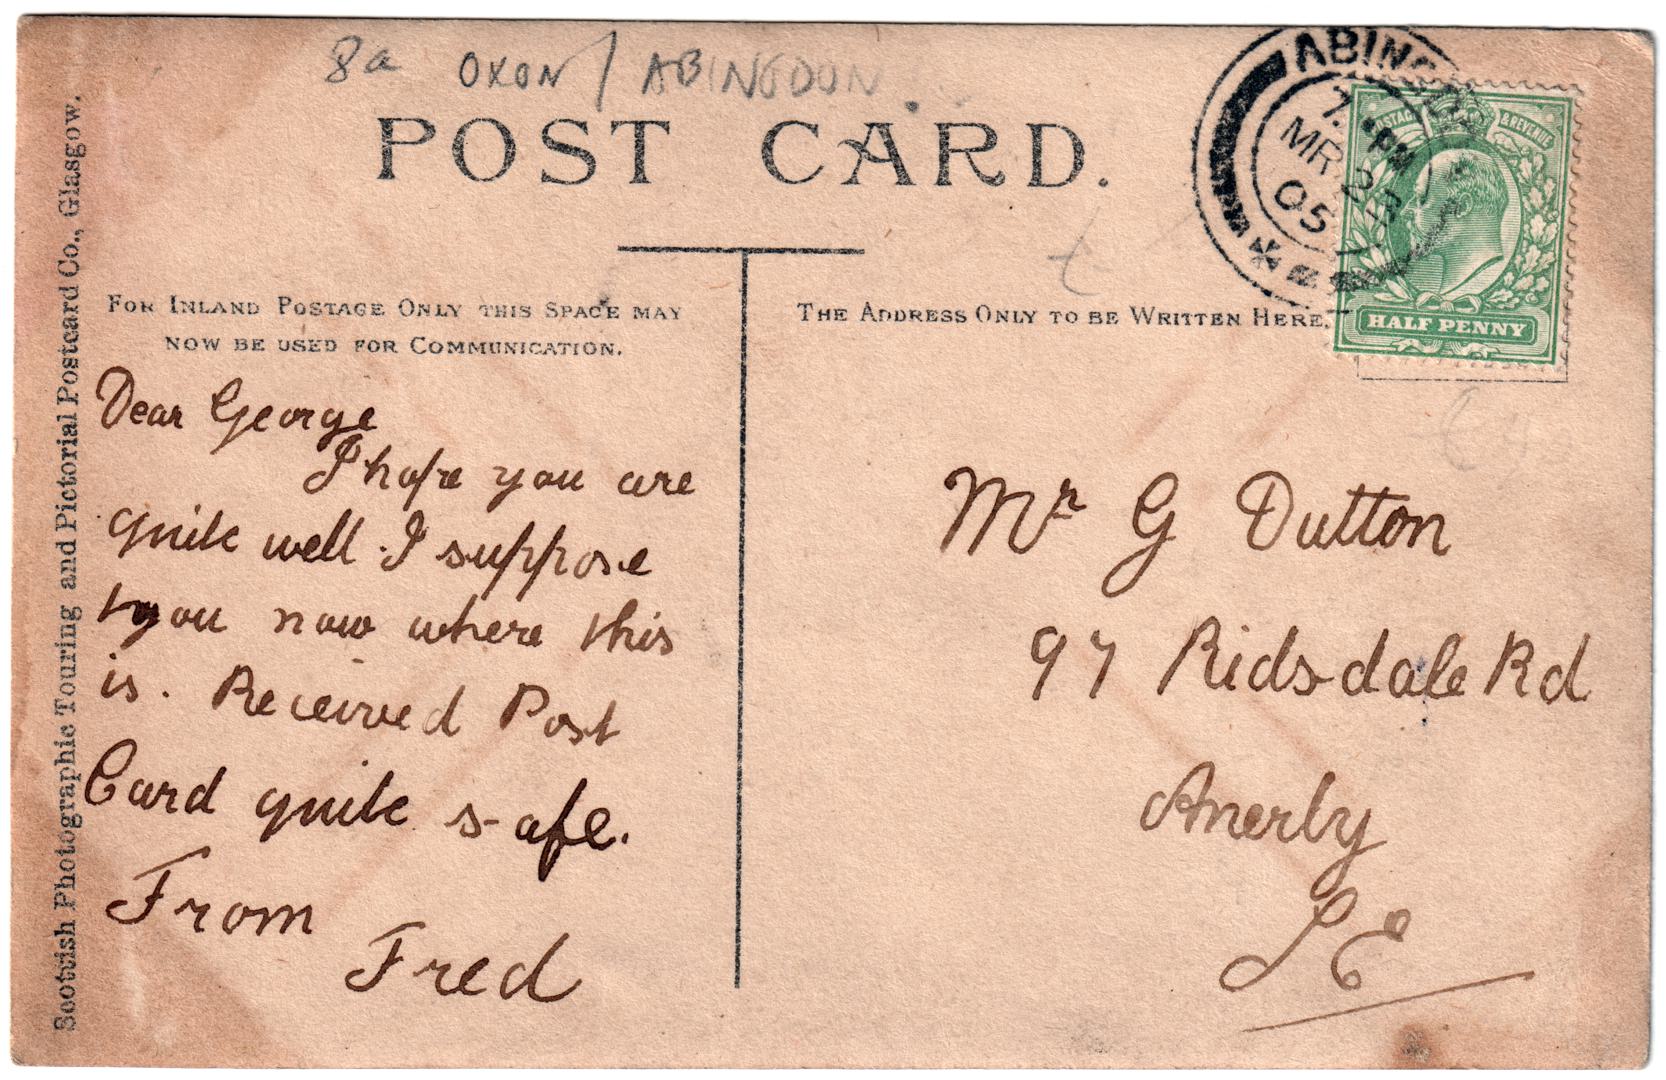 8a OXON / ABINGDON
POST CARD.
ABINGDON
7. PM
MR 23
05
POSTAGE & REVENUE
HALF PENNY
Scottish Photographic Touring and Pictorial Postcard Co., Glasgow.
FOR INLAND POSTAGE ONLY THIS SPACE MAY
NOW BE USED FOR COMMUNICATION.
Dear George
I hope you are
quite well. I suppose
you now where this
is. Received Post
Card quite safe.
From
Fred
THE ADDRESS ONLY TO BE WRITTEN HERE.
Mr G Dutton
97 Ridsdale Rd
Anerly
S E